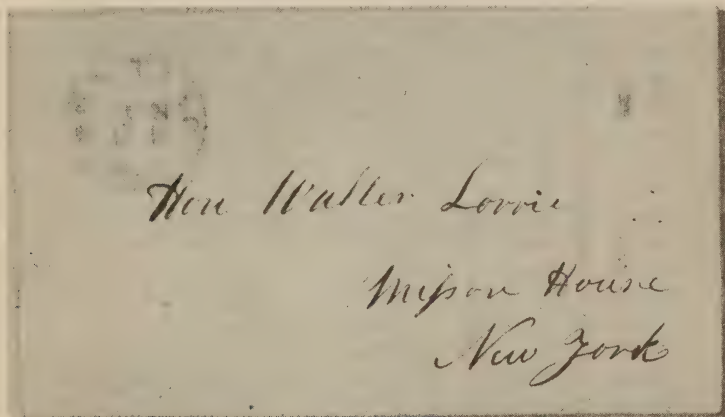 Hon Walter Lorrie
Mission House
New York